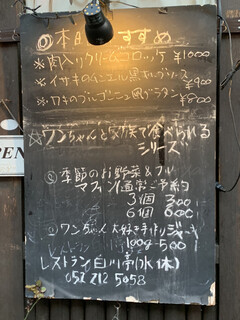 ◎本日 すすめ
※肉入りクリームコロッケ ¥1000
※イサキのムニエル 黒オリーブソース ¥900
※カキのブルゴーニュ風グラタン ¥800
☆ワンちゃんと家族で食べられる
シリーズ
季節のお野菜&フル
マフィン 通常ご予約
3個 300
6個 600
ワンちゃん大好き手作りジャー
100g 500
レストラン 白川亭(水休)
052 212 5958
PEN